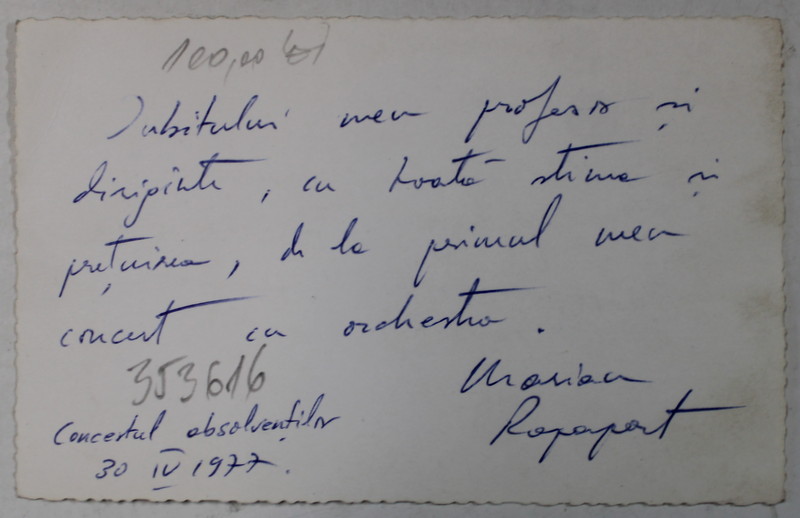 100,00
Iubitului meu profesor și
dirijinte, cu toată stima și
prețuirea, de la primul meu
concert cu orchestra.
353616
Marian
Rapaport
Concertul absolvenților
30 IV 1977.